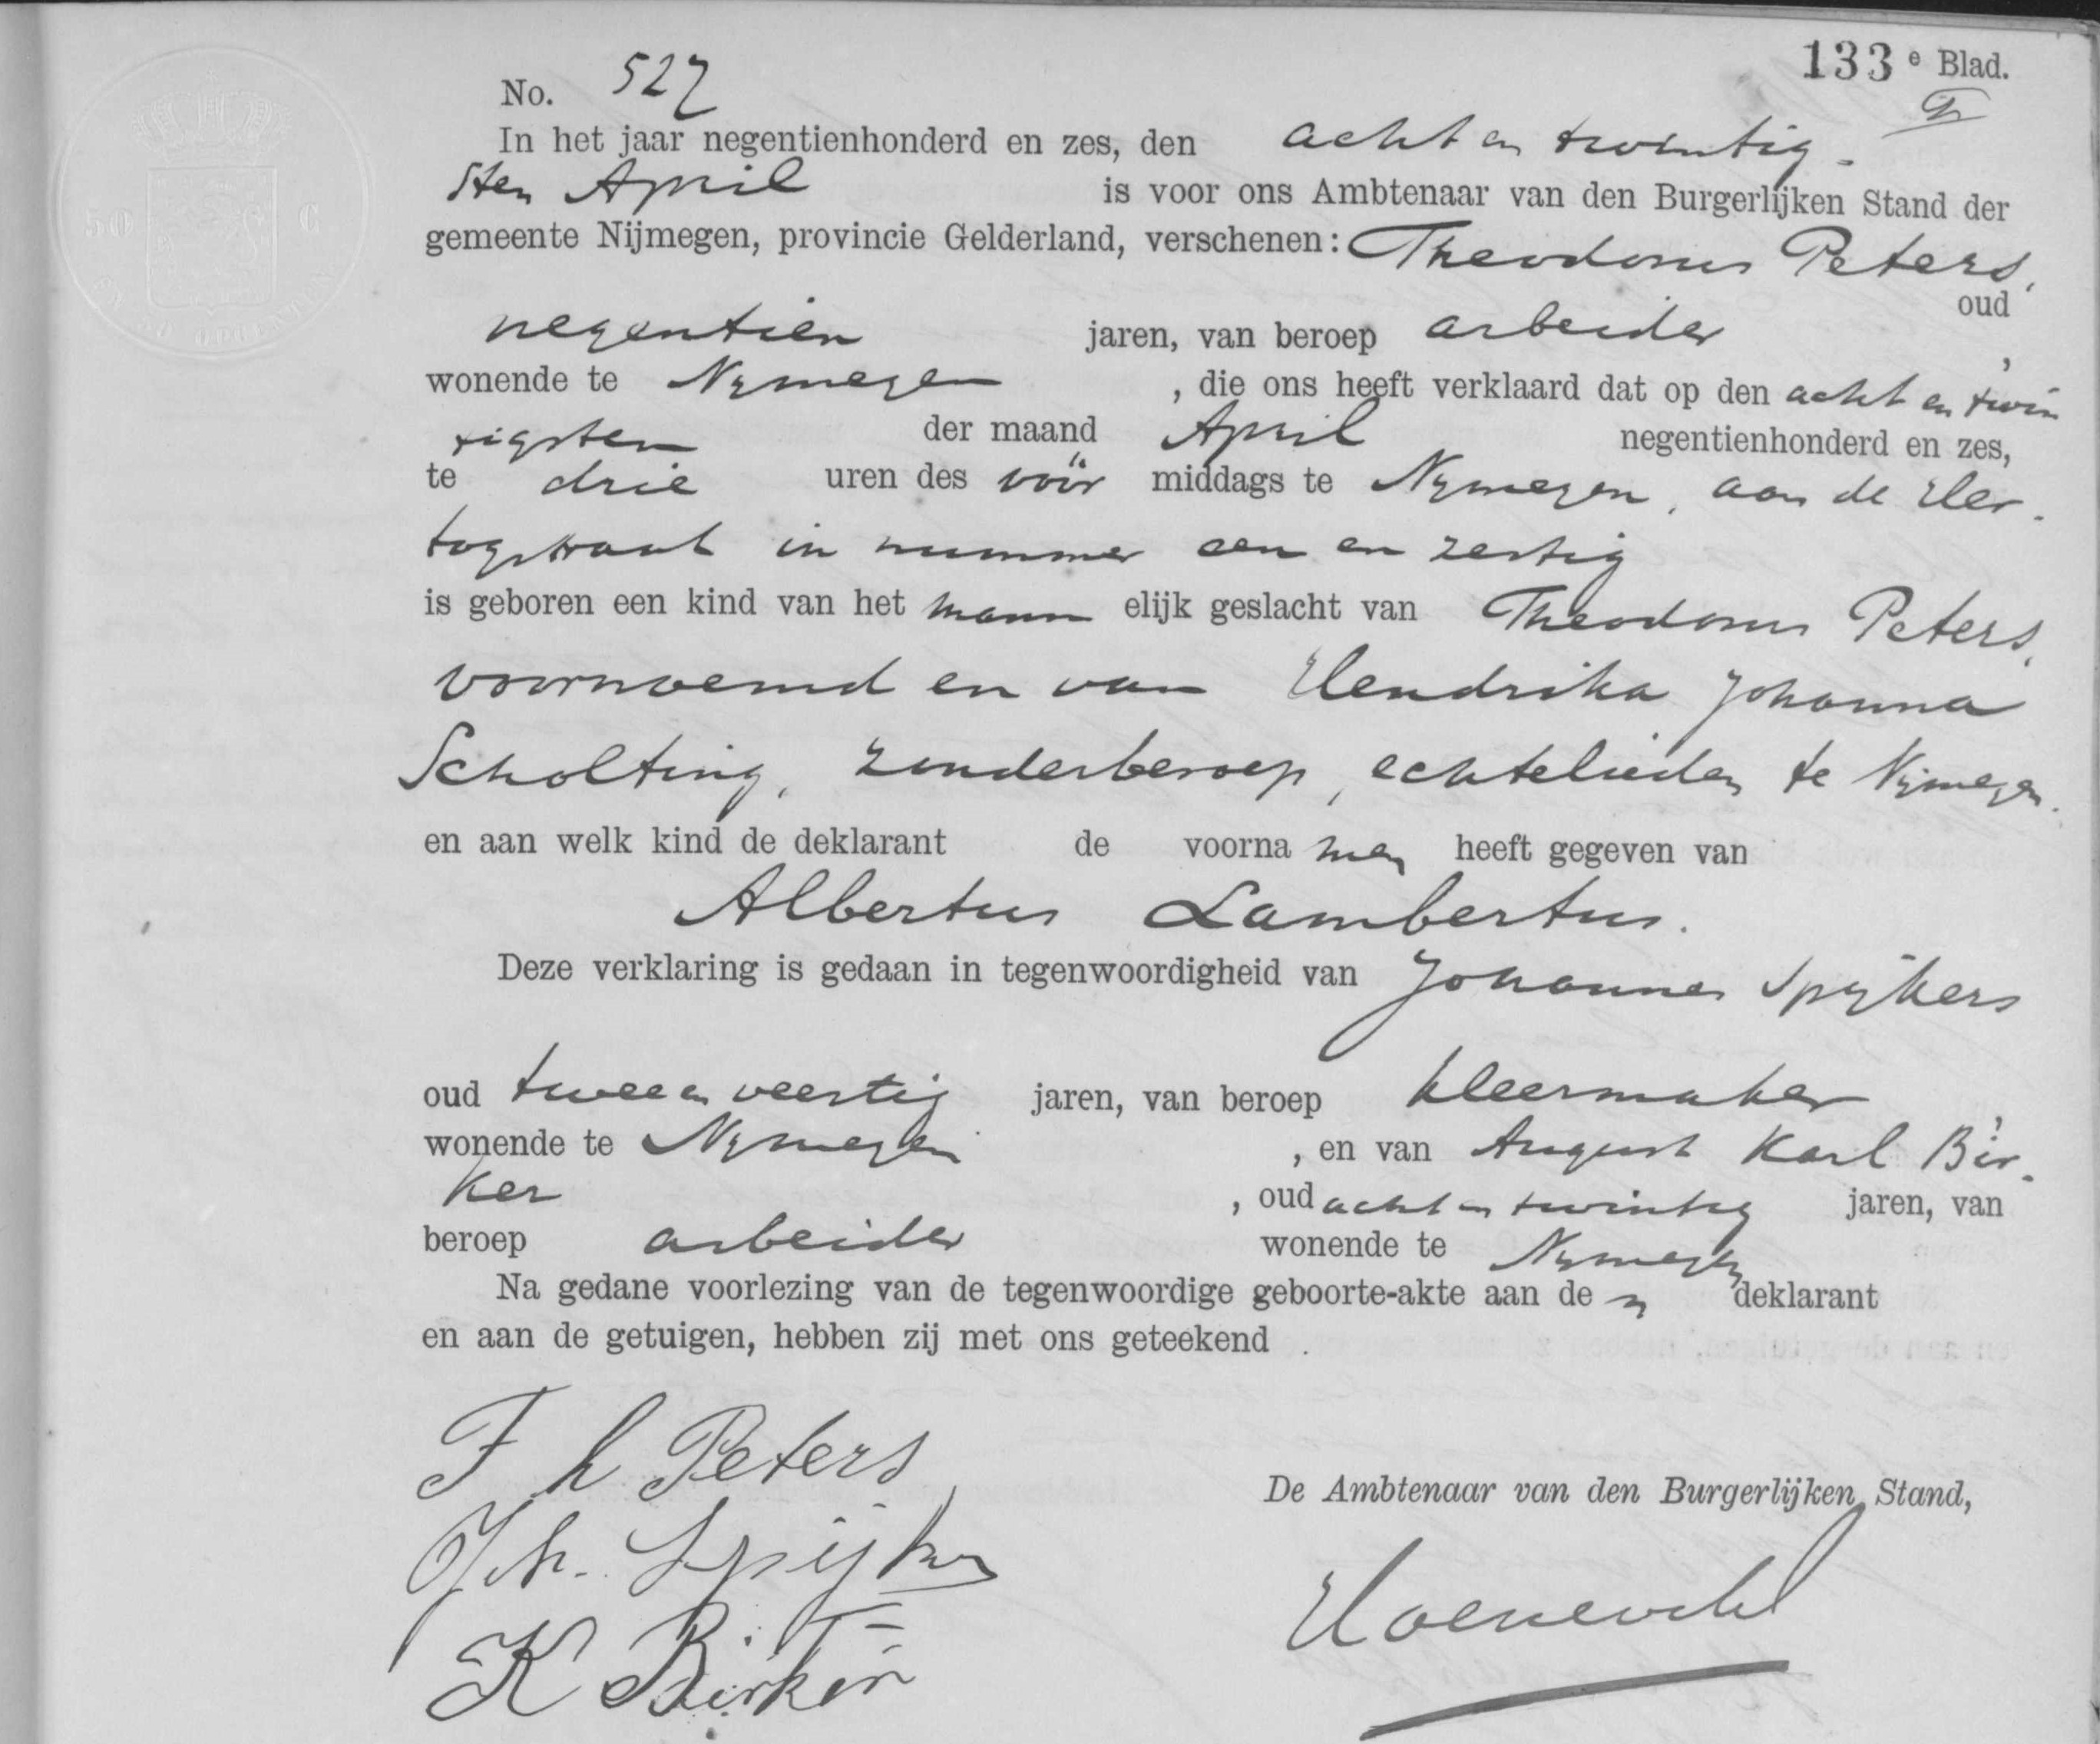 133e Blad.
No. 527
In het jaar negentienhonderd en zes, den acht en twintig-
sten April is voor ons Ambtenaar van den Burgerlijken Stand der
gemeente Nijmegen, provincie Gelderland, verschenen: Theodorus Peters,
oud
negentien jaren, van beroep arbeider,
wonende te Nijmegen, die ons heeft verklaard dat op den acht en twin
tigsten der maand April negentienhonderd en zes,
te drie uren des vóór middags te Nijmegen, aan de Her-
togstraat in nummer een en zestig
is geboren een kind van het mann elijk geslacht van Theodorus Peters,
voornoemd en van Hendrika Johanna
Scholting, zonder beroep, echtelieden te Nijmegen.
en aan welk kind de deklarant de voorna men heeft gegeven van
Albertus Lambertus.
Deze verklaring is gedaan in tegenwoordigheid van Johannes Spijkers
oud twee en veertig jaren, van beroep kleermaker,
wonende te Nijmegen, en van August Karl Bir-
ker, oud acht en twintig jaren, van
beroep arbeider wonende te Nijmegen
Na gedane voorlezing van de tegenwoordige geboorte-akte aan de n deklarant
en aan de getuigen, hebben zij met ons geteekend.
Th Peters
De Ambtenaar van den Burgerlijken Stand,
Joh. Spijkers
K Birker
50 C